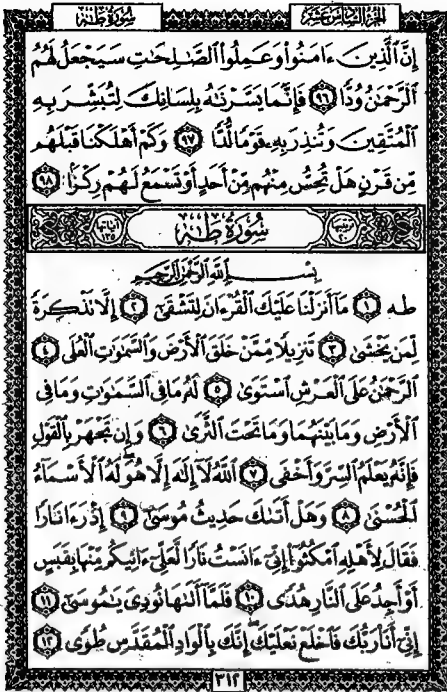 سُورَةُ طٰهٰ الجُزْءُ السَّادِسُ عَشَرَ
إِنَّ ٱلَّذِينَ ءَامَنُوا۟ وَعَمِلُوا۟ ٱلصَّـٰلِحَـٰتِ سَيَجْعَلُ لَهُمُ
ٱلرَّحْمَـٰنُ وُدًّا ٩٦ فَإِنَّمَا يَسَّرْنَـٰهُ بِلِسَانِكَ لِتُبَشِّرَ بِهِ
ٱلْمُتَّقِينَ وَتُنذِرَ بِهِۦ قَوْمًا لُّدًّا ٩٧ وَكَمْ أَهْلَكْنَا قَبْلَهُم
مِّن قَرْنٍ هَلْ تُحِسُّ مِنْهُم مِّنْ أَحَدٍ أَوْ تَسْمَعُ لَهُمْ رِكْزًۢا ٩٨
سُورَةُ طٰهٰ
بِسْمِ ٱللَّهِ ٱلرَّحْمَـٰنِ ٱلرَّحِيمِ
طه ١ مَآ أَنزَلْنَا عَلَيْكَ ٱلْقُرْءَانَ لِتَشْقَىٰٓ ٢ إِلَّا تَذْكِرَةً
لِّمَن يَخْشَىٰ ٣ تَنزِيلًا مِّمَّنْ خَلَقَ ٱلْأَرْضَ وَٱلسَّمَـٰوَٰتِ ٱلْعُلَى ٤
ٱلرَّحْمَـٰنُ عَلَى ٱلْعَرْشِ ٱسْتَوَىٰ ٥ لَهُۥ مَا فِى ٱلسَّمَـٰوَٰتِ وَمَا فِى
ٱلْأَرْضِ وَمَا بَيْنَهُمَا وَمَا تَحْتَ ٱلثَّرَىٰ ٦ وَإِن تَجْهَرْ بِٱلْقَوْلِ
فَإِنَّهُۥ يَعْلَمُ ٱلسِّرَّ وَأَخْفَى ٧ ٱللَّهُ لَآ إِلَـٰهَ إِلَّا هُوَ لَهُ ٱلْأَسْمَآءُ
ٱلْحُسْنَىٰ ٨ وَهَلْ أَتَىٰكَ حَدِيثُ مُوسَىٰٓ ٩ إِذْ رَءَا نَارًا
فَقَالَ لِأَهْلِهِ ٱمْكُثُوٓا۟ إِنِّىٓ ءَانَسْتُ نَارًا لَّعَلِّىٓ ءَاتِيكُم مِّنْهَا بِقَبَسٍ
أَوْ أَجِدُ عَلَى ٱلنَّارِ هُدًى ١٠ فَلَمَّآ أَتَىٰهَا نُودِىَ يَـٰمُوسَىٰٓ ١١
إِنِّىٓ أَنَا۠ رَبُّكَ فَٱخْلَعْ نَعْلَيْكَ إِنَّكَ بِٱلْوَادِ ٱلْمُقَدَّسِ طُوًى ١٢
٣١٢